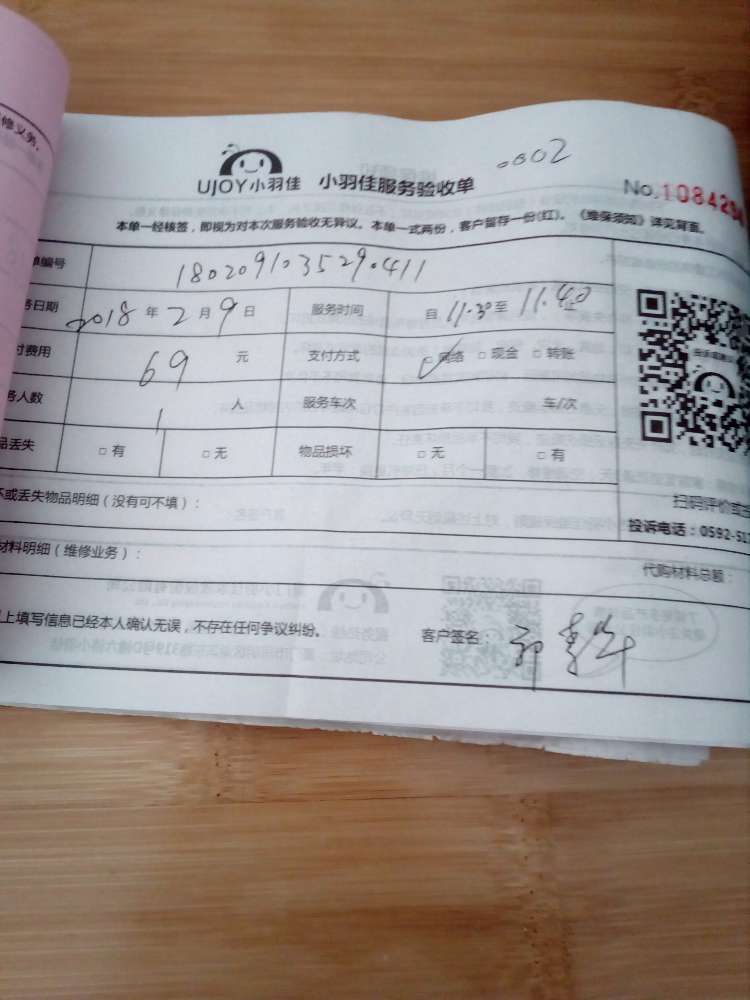 修义务.
.0002
UJOY小羽佳 小羽佳服务验收单
No.1084294
本单一经核签，即视为对本次服务验收无异议。本单一式两份，客户留存一份(红)。《维保须知》详见背面。
单编号 1802091035290411
务日期 2018 年 2 月 9 日 服务时间 自 11.30 至 11.40 止
付费用 69 元 支付方式 □网络 □现金 □转账
务人数 1 人 服务车次 车/次
品丢失 □有 □无 物品损坏 □无 □有
坏或丢失物品明细（没有可不填）：
扫码评价或
投诉电话：0592-51
材料明细（维修业务）：
代购材料总额：
上填写信息已经本人确认无误，不存在任何争议纠纷。 客户签名：